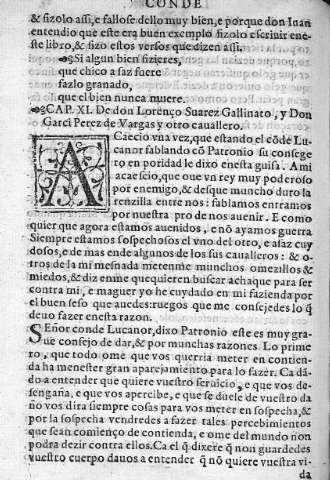 CONDE
& fizolo assi, e fallose dello muy bien, e porque don Iuan
entendio que este era buen exemplo fizolo escriuir ene
ste libro, & fizo estos versos que dizen assi.
Si algun bien fizieres,
que chico a faz fuere
fazlo granado,
que el bien nunca muere.
CAP. XI. De don Lorenço Suarez Gallinato, y Don
Garci Perez de Vargas y otro cauallero.
ACaecio vna vez, que estando el cōde Lu
canor fablando cō Patronio su consege
ro en poridad le dixo enesta guisa. Ami
acaescio, que oue vn rey muy poderoso
por enemigo, & desque muncho duro la
renzilla entre nos: fablamos entramos
por nuestra pro de nos auenir. E como
quier que agora estamos auenidos, e nō ayamos guerra
Siempre estamos sospechosos el vno del otro, e afaz cuy
dosos, e de mas ende algunos de los sus caualleros: & o-
tros de la mi mesnada metenme munchos omezillos &
miedos, & diz enme que quieren buscar achaque para ser
contra mi, e maguer yo he cuydado en mi fazienda por
el buen seso que auedes: ruegos que me consejedes lo q̄
deuo fazer enesta razon.
SEñor conde Lucanor, dixo Patronio este es muy gra-
ue consejo de dar, & por munchas razones. Lo prime
ro, que todo ome que vos querria meter en contien
da ha menester gran aparejamiento para lo fazer. Ca dā-
do a entender que quiere vuestro seruicio, e que vos de-
sengaña, e que vos apercibe, e que se duele de vuestro da
ño vos dira siempre cosas para vos meter en sospecha, &
por la sospecha vendredes a fazer tales percebimientos
que sean comienço de contienda, e ome del mundo non
podra dezir contra ellos. Ca el q̄ dixere q̄ non guardedes
vuestro cuerpo dauos a entender q̄ nō quiere vuestra vi-
da